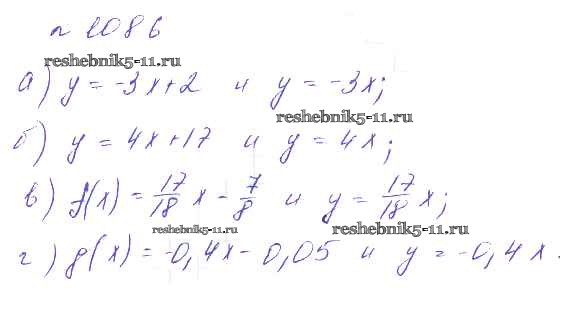 № 1086
reshebnik5-11.ru
а) y = -3x+2 и y = -3x;
reshebnik5-11.ru
б) y = 4x+17 и y = 4x;
в) f(x) = 17/18 x - 7/8 и y = 17/18 x;
reshebnik5-11.ru reshebnik5-11.ru
г) g(x) = -0,4x - 0,05 и y = -0,4x.